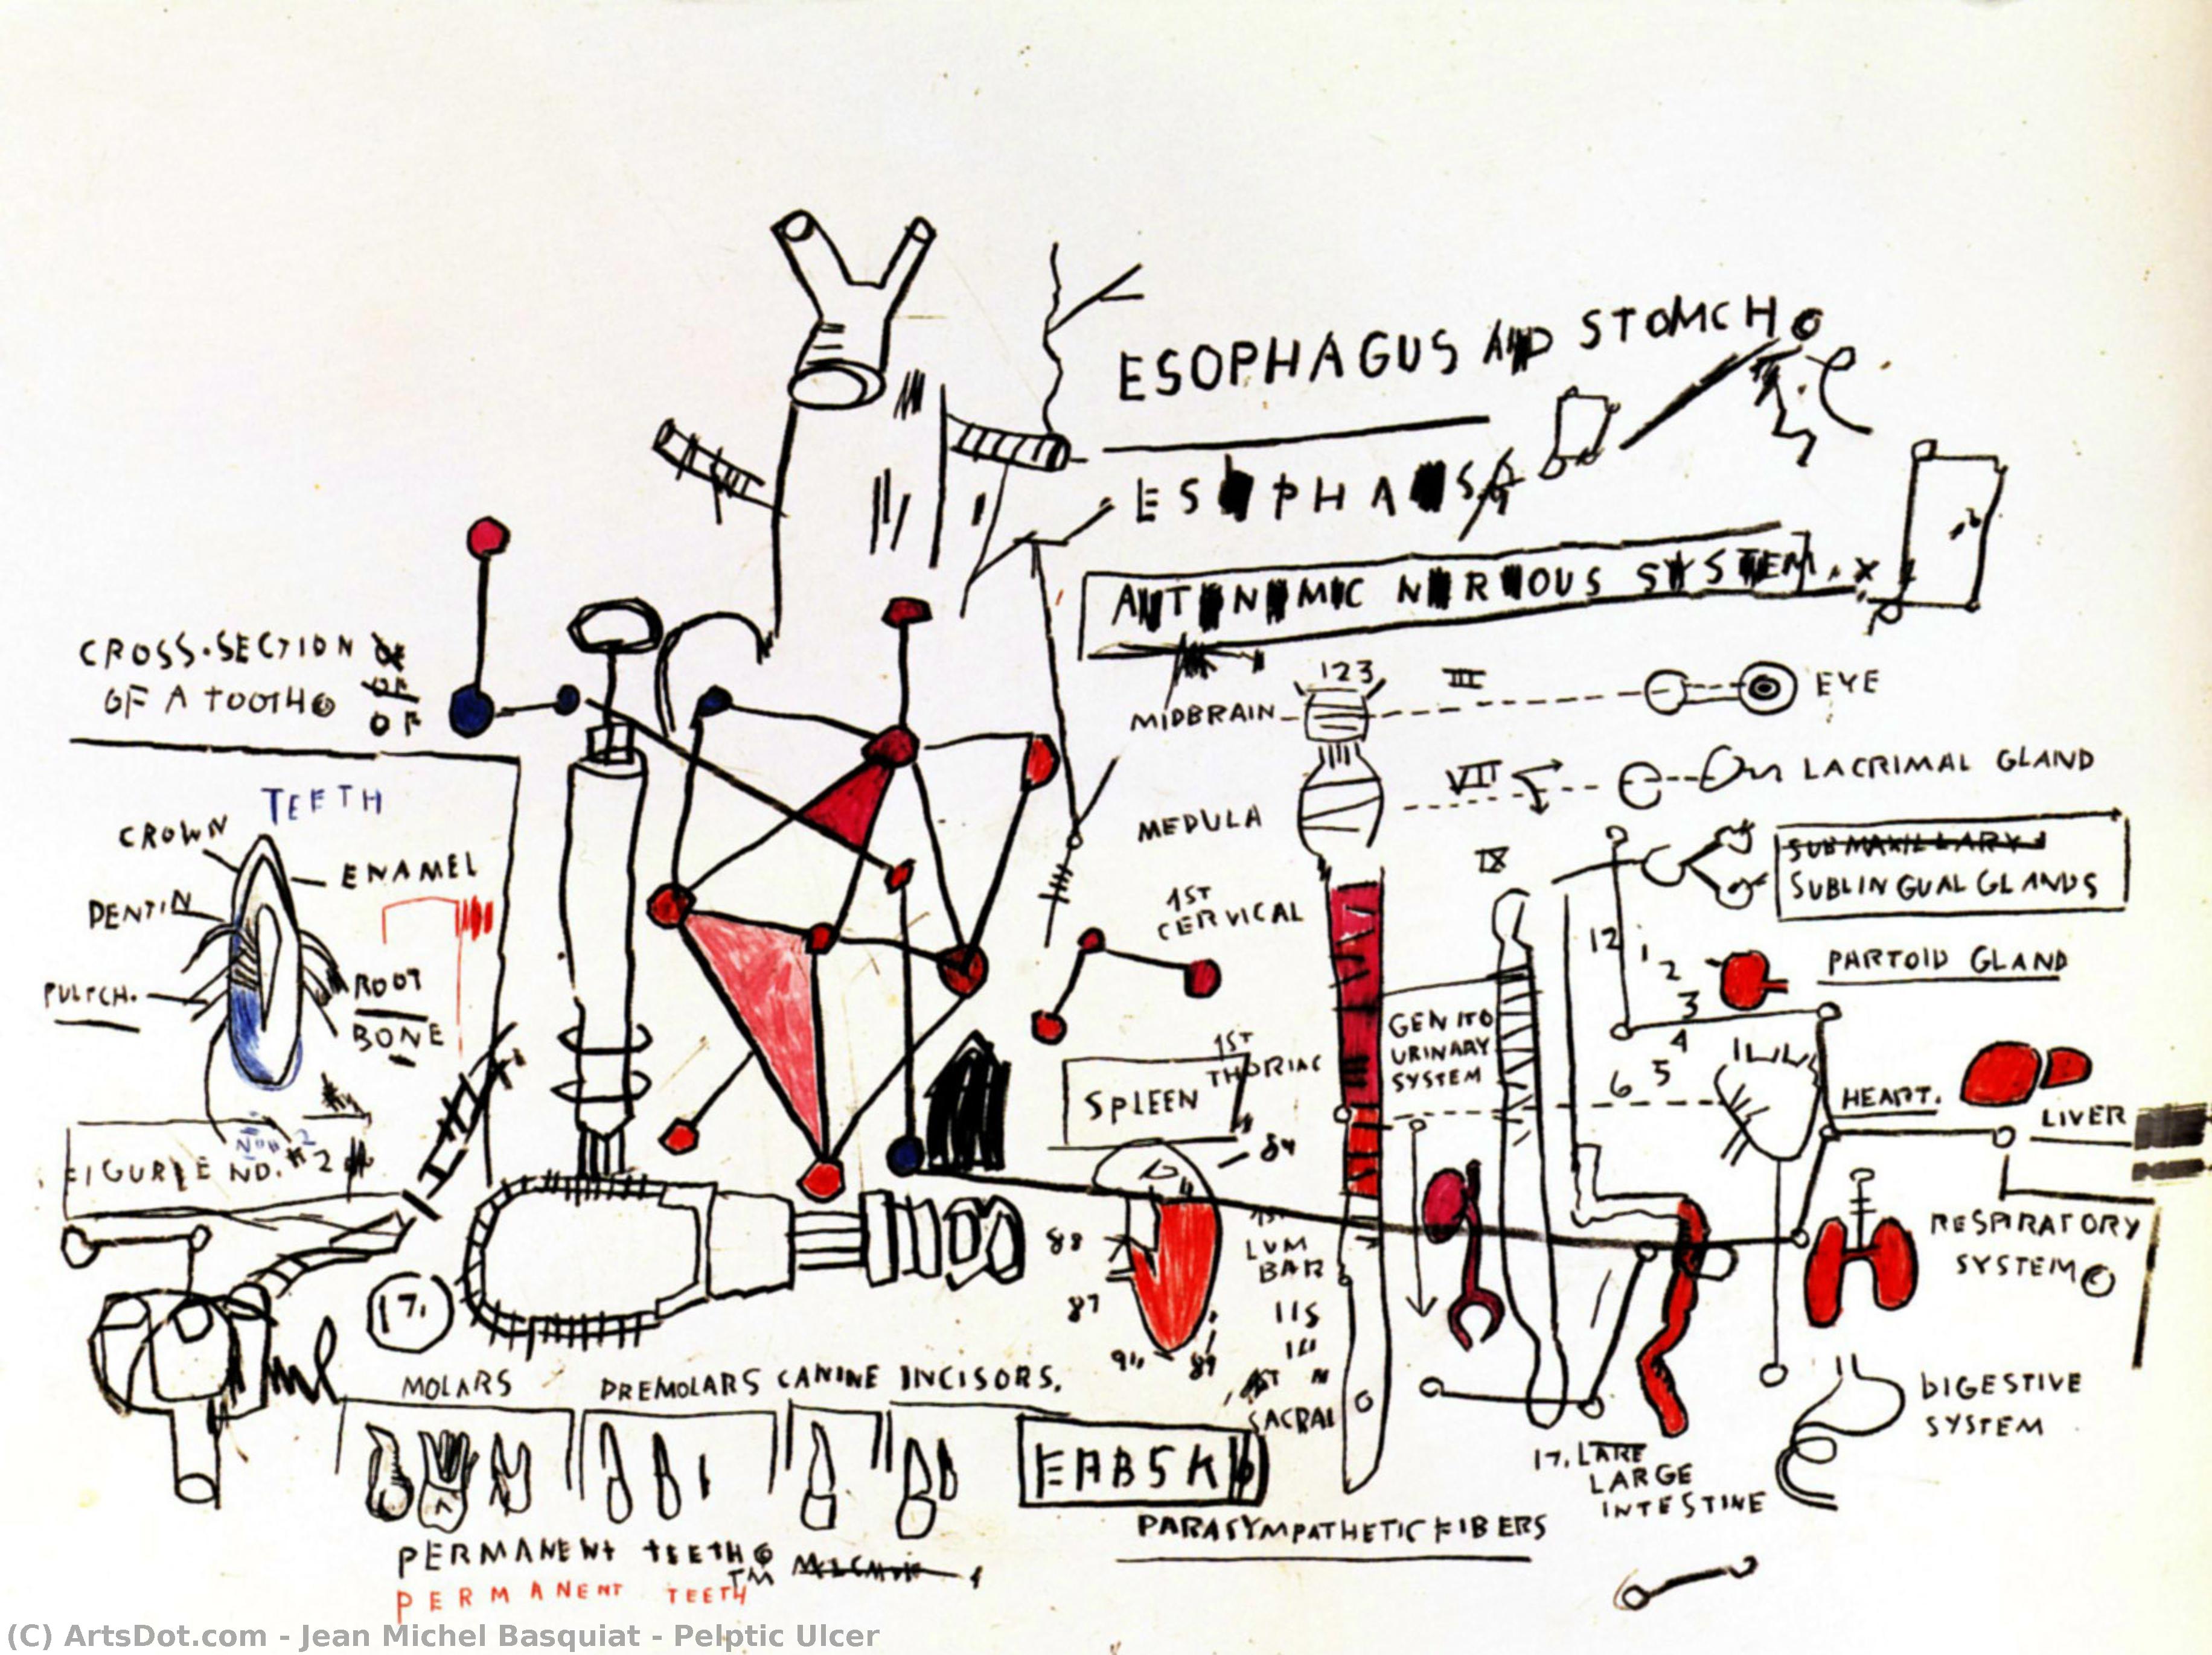 ESOPHAGUS AND STOMCH
ESOPHA
AUTONOMIC NERVOUS SYSTEM.
CROSS-SECTION OF
OF A TOOTH © OF
OF
TEETH
CROWN
ENAMEL
DENTIN
PULPCH.
ROOT
BONE
FIGURE NO. #2
17.
MOLARS PREMOLARS CANINE INCISORS.
PERMANENT TEETH©
TM
PERMANENT TEETH
EABSK
MIDBRAIN
123
III
EYE
MEDULA
VII
LACRIMAL GLAND
IX
SUBMAXILLARY
SUBLINGUAL GLANDS
1ST
CERVICAL
12
1
2
3
4
5
6
PARTOID GLAND
GENITO
URINARY
SYSTEM
1ST
THORIAC
SPLEEN
HEART.
LIVER
84
88
87
89
LUM
BAR
115
SACRAL
RESPIRATORY
SYSTEM©
DIGESTIVE
SYSTEM
17. LARE
LARGE
INTESTINE
PARASYMPATHETIC FIBERS
(C) ArtsDot.com - Jean Michel Basquiat - Pelptic Ulcer